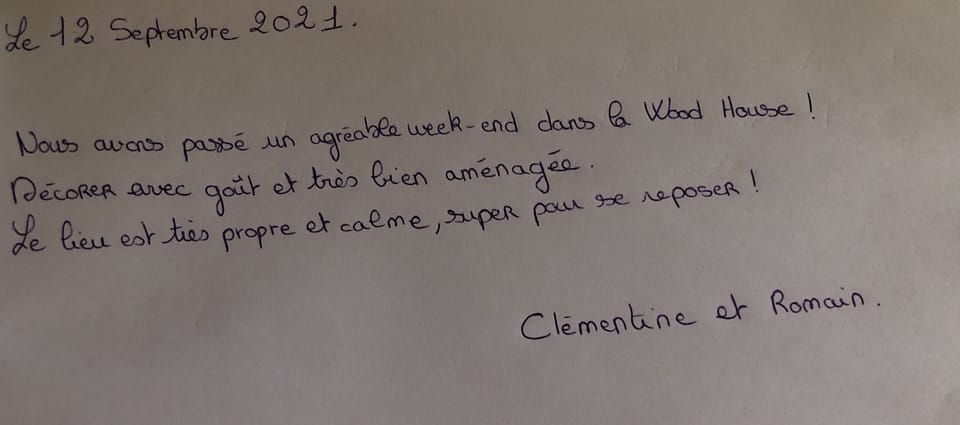 Le 12 Septembre 2021.
Nous avons passé un agréable week-end dans la Wood House !
Décorer avec goût et très bien aménagée.
Le lieu est très propre et calme, super pour se reposer !
Clémentine et Romain.